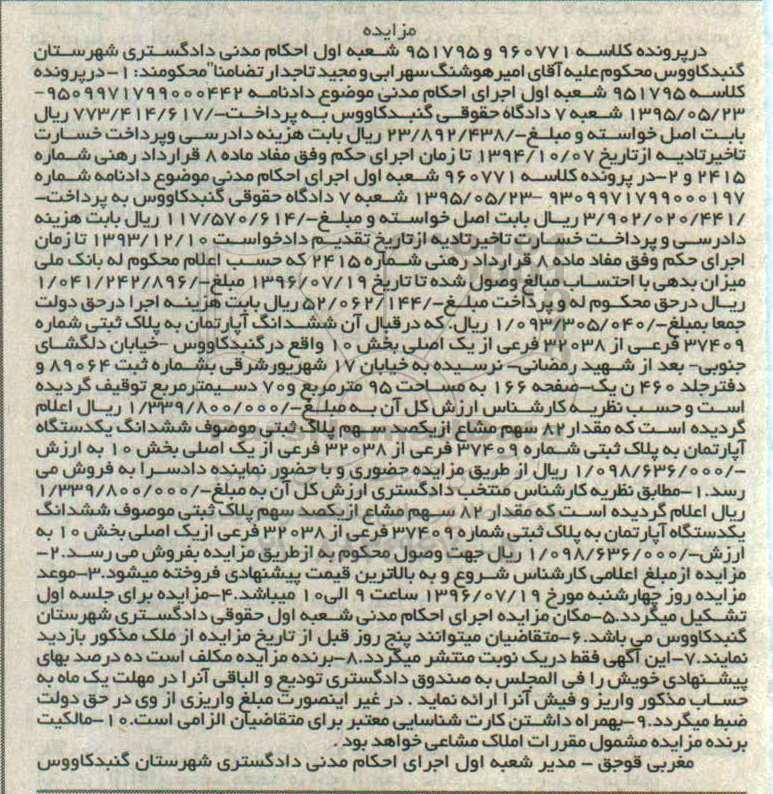 مزایده
درپرونده کلاسه ۹۶۰۷۷۱ و ۹۵۱۷۹۵ شعبه اول احکام مدنی دادگستری شهرستان
گنبدکاووس محکوم علیه آقای امیر هوشنگ سهرابی و مجید تاجدار تضامنا"محکومند: ۱-درپرونده
کلاسه ۹۵۱۷۹۵ شعبه اول اجرای احکام مدنی موضوع دادنامه ۹۵۰۹۹۷۱۷۹۹۰۰۰۴۴۲-
۱۳۹۵/۰۵/۲۳ شعبه ۷ دادگاه حقوقی گنبدکاووس به پرداخت-/۷۷۳/۴۱۴/۶۱۷ ریال
بابت اصل خواسته و مبلغ-/۲۳/۸۹۲/۴۳۸ ریال بابت هزینه دادرسی وپرداخت خسارت
تاخیرتادیه ازتاریخ ۱۳۹۴/۱۰/۰۷ تا زمان اجرای حکم وفق مفاد ماده ۸ قرارداد رهنی شماره
۲۴۱۵ و ۲-در پرونده کلاسه ۹۶۰۷۷۱ شعبه اول اجرای احکام مدنی موضوع دادنامه شماره
۹۳۰۹۹۷۱۷۹۹۰۰۰۱۹۷ -۱۳۹۵/۰۵/۲۳ شعبه ۷ دادگاه حقوقی گنبدکاووس به پرداخت-
/۳/۹۰۲/۰۲۰/۴۴۱ ریال بابت اصل خواسته و مبلغ-/۱۱۷/۵۷۰/۶۱۴ ریال بابت هزینه
دادرسی و پرداخت خسارت تاخیرتادیه ازتاریخ تقدیم دادخواست ۱۳۹۳/۱۲/۱۰ تا زمان
اجرای حکم وفق مفاد ماده ۸ قرارداد رهنی شماره ۲۴۱۵ که حسب اعلام محکوم له بانک ملی
میزان بدهی با احتساب مبالغ وصول شده تا تاریخ ۱۳۹۶/۰۷/۱۹ مبلغ-/۱/۰۴۱/۲۴۲/۸۹۶
ریال درحق محکوم له و پرداخت مبلغ-/۵۲/۰۶۲/۱۴۴ ریال بابت هزینه اجرا درحق دولت
جمعا بمبلغ-/۱/۰۹۳/۳۰۵/۰۴۰ ریال. که درقبال آن ششدانگ آپارتمان به پلاک ثبتی شماره
۳۷۴۰۹ فرعی از ۳۲۰۳۸ فرعی از یک اصلی بخش ۱۰ واقع درگنبدکاووس -خیابان دلگشای
جنوبی- بعد از شهید رمضانی- نرسیده به خیابان ۱۷ شهریورشرقی بشماره ثبت ۸۹۰۶۴ و
دفترجلد ۴۶۰ ن یک-صفحه ۱۶۶ به مساحت ۹۵ مترمربع و۷۰ دسیمترمربع توقیف گردیده
است و حسب نظریه کارشناس ارزش کل آن به مبلغ-/۱/۳۳۹/۸۰۰/۰۰۰ ریال اعلام
گردیده است که مقدار ۸۲ سهم مشاع ازیکصد سهم پلاک ثبتی موصوف ششدانگ یکدستگاه
آپارتمان به پلاک ثبتی شماره ۳۷۴۰۹ فرعی از ۳۲۰۳۸ فرعی از یک اصلی بخش ۱۰ به ارزش
-/۱/۰۹۸/۶۳۶/۰۰۰ ریال از طریق مزایده حضوری و با حضور نماینده دادسرا به فروش می
رسد.۱-مطابق نظریه کارشناس منتخب دادگستری ارزش کل آن به مبلغ-/۱/۳۳۹/۸۰۰/۰۰۰
ریال اعلام گردیده است که مقدار ۸۲ سهم مشاع ازیکصد سهم پلاک ثبتی موصوف ششدانگ
یکدستگاه آپارتمان به پلاک ثبتی شماره ۳۷۴۰۹ فرعی از ۳۲۰۳۸ فرعی ازیک اصلی بخش ۱۰ به
ارزش-/۱/۰۹۸/۶۳۶/۰۰۰ ریال جهت وصول محکوم به ازطریق مزایده بفروش می رسد.۲-
مزایده ازمبلغ اعلامی کارشناس شروع و به بالاترین قیمت پیشنهادی فروخته میشود.۳-موعد
مزایده روز چهارشنبه مورخ ۱۳۹۶/۰۷/۱۹ ساعت ۹ الی۱۰ میباشد.۴-مزایده برای جلسه اول
تشکیل میگردد.۵-مکان مزایده اجرای احکام مدنی شعبه اول حقوقی دادگستری شهرستان
گنبدکاووس می باشد.۶-متقاضیان میتوانند پنج روز قبل از تاریخ مزایده از ملک مذکور بازدید
نمایند.۷-این آگهی فقط دریک نوبت منتشر میگردد.۸-برنده مزایده مکلف است ده درصد بهای
پیشنهادی خویش را فی المجلس به صندوق دادگستری تودیع و الباقی آنرا در مهلت یک ماه به
حساب مذکور واریز و فیش آنرا ارائه نماید . در غیر اینصورت مبلغ واریزی از وی در حق دولت
ضبط میگردد.۹-بهمراه داشتن کارت شناسایی معتبر برای متقاضیان الزامی است.۱۰-مالکیت
برنده مزایده مشمول مقررات املاک مشاعی خواهد بود .
مغربی قوجق - مدیر شعبه اول اجرای احکام مدنی دادگستری شهرستان گنبدکاووس